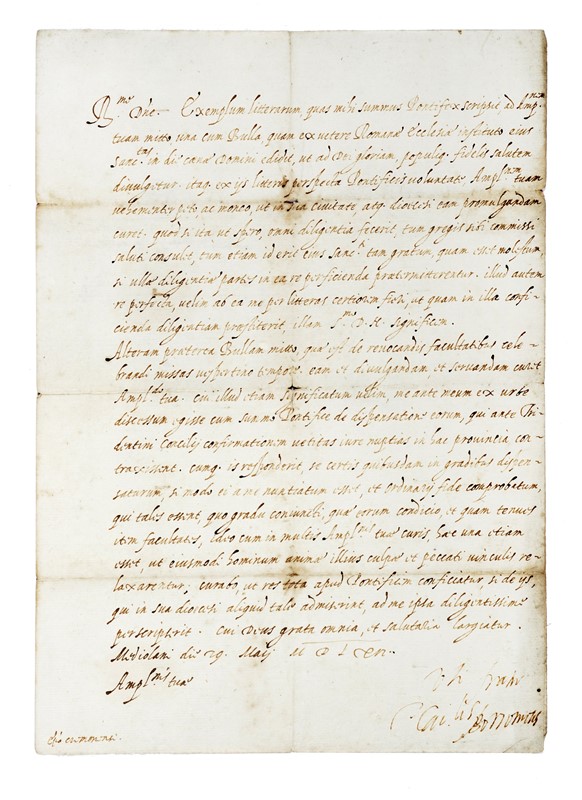 R.mo Dne. Exemplum litterarum, quas mihi summus Pontifex scripsit, ad Ampl.nem
tuam mitto, una cum Bulla, quam ex vetere Romanae Ecclesiae instituto eius
Sanc.tas in die Canae Domini edidit, ut ad Dei gloriam, populiq. fidelis salutem
divulgetur. itaq. ex ijs litteris perspecta Pontificis voluntate, Ampl.nem tuam
vehementer peto ac moneo, ut in sua civitate, atq. dioecesi eam promulgandam
curet. quod si ita, ut spero, omni diligentia fecerit, tum gregis sibi commissi
saluti consulet, tum etiam id erit eius Sanc.ti tam gratum, quam esset molestum,
si ullae diligentiae partes in ea re perficienda praetermitterentur. illud autem
re perfecta, velim ab ea me per litteras certiorem fieri, ut quam in illa confi-
cienda diligentiam praestiterit, illam S.mo D. N. significem.
Alteram praeterea Bullam mitto, quae est de revocandis facultatibus cele-
brandi missas vespertino tempore. eam et divulgandam, et servandam curet
Ampl.do tua. cui illud etiam significatum velim, me ante meum ex urbe
discessum egisse cum summo Pontifice de dispensatione eorum, qui ante Tri-
dentini Concilij confirmationem vetitas iure nuptias in hac provincia con-
traxissent. cumq. is responderit, se certis quibusdam in gradibus dispen-
saturum, si modo ei a me nuntiatum esset, et ordinarij fide comprobatum,
qui tales essent, quo gradu coniuncti, quae eorum condicio, et quam tenues
item facultates, ideo cum in multis Ampl.nis tuae curis, haec una etiam
esset, ut eiusmodi hominum animae illius culpae et peccati vinculis re-
laxarentur, curabo, ut res tota apud Pontificem conficiatur, si de ijs,
qui in sua dioecesi aliquid tale admiserint, ad me ipsa diligentissime
perscripserit. Cui Deus grata omnia, et salutaria largiatur.
Mediolani die 29. Maij
Ampl.nis tuae
Borromeus